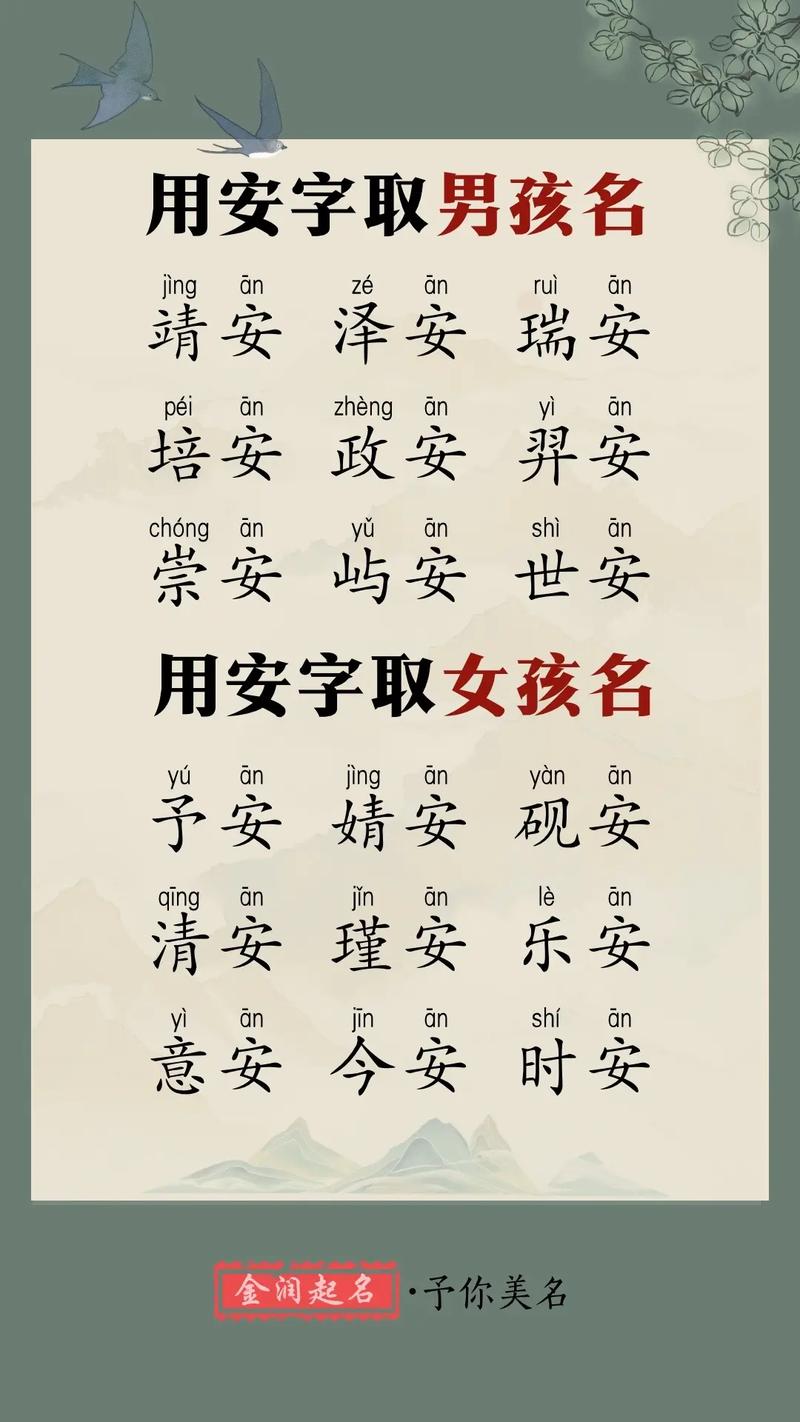 用安字取男孩名
jìng ān zé ān ruì ān
靖安 泽安 瑞安
péi ān zhèng ān yì ān
培安 政安 羿安
chóng ān yǔ ān shì ān
崇安 屿安 世安
用安字取女孩名
yú ān jìng ān yàn ān
予安 婧安 砚安
qīng ān jǐn ān lè ān
清安 瑾安 乐安
yì ān jīn ān shí ān
意安 今安 时安
金润起名·予你美名